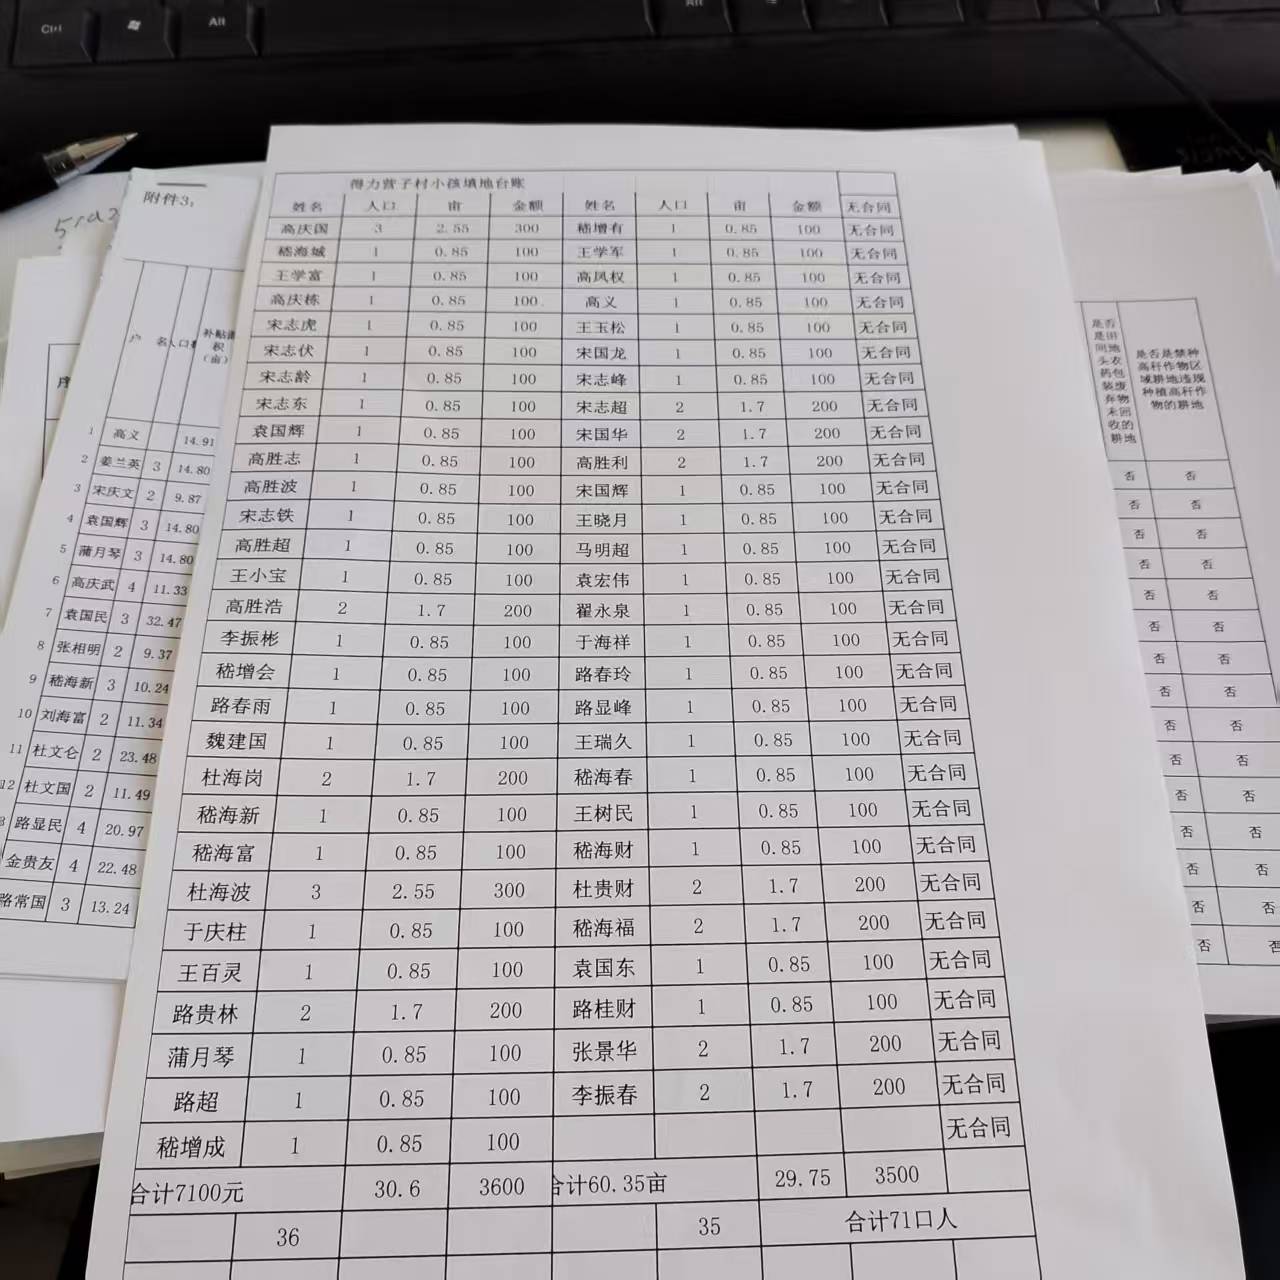 Ctrl
Alt
Alt
附件3:
户 名 人口 补贴面积（亩）
1 高义 14.91
2 姜兰英 3 14.80
3 宋庆文 2 9.87
4 袁国辉 3 14.80
5 蒲月琴 3 14.80
6 高庆武 4 11.33
7 袁国民 3 32.47
8 张相明 2 9.37
9 嵇海新 3 10.24
10 刘海富 2 11.34
11 杜文仑 2 23.48
12 杜文国 2 11.49
路显民 4 20.97
金贵友 4 22.48
路常国 3 13.24
得力营子村小孩填地台账
姓名 人口 亩 金额 姓名 人口 亩 金额 无合同
高庆国 3 2.55 300 嵇增有 1 0.85 100 无合同
嵇海城 1 0.85 100 王学军 1 0.85 100 无合同
王学富 1 0.85 100 高凤权 1 0.85 100 无合同
高庆栋 1 0.85 100 高义 1 0.85 100 无合同
宋志虎 1 0.85 100 王玉松 1 0.85 100 无合同
宋志伏 1 0.85 100 宋国龙 1 0.85 100 无合同
宋志龄 1 0.85 100 宋志峰 1 0.85 100 无合同
宋志东 1 0.85 100 宋志超 2 1.7 200 无合同
袁国辉 1 0.85 100 宋国华 2 1.7 200 无合同
高胜志 1 0.85 100 高胜利 2 1.7 200 无合同
高胜波 1 0.85 100 宋国辉 1 0.85 100 无合同
宋志铁 1 0.85 100 王晓月 1 0.85 100 无合同
高胜超 1 0.85 100 马明超 1 0.85 100 无合同
王小宝 1 0.85 100 袁宏伟 1 0.85 100 无合同
高胜浩 2 1.7 200 翟永泉 1 0.85 100 无合同
李振彬 1 0.85 100 于海祥 1 0.85 100 无合同
嵇增会 1 0.85 100 路春玲 1 0.85 100 无合同
路春雨 1 0.85 100 路显峰 1 0.85 100 无合同
魏建国 1 0.85 100 王瑞久 1 0.85 100 无合同
杜海岗 2 1.7 200 嵇海春 1 0.85 100 无合同
嵇海新 1 0.85 100 王树民 1 0.85 100 无合同
嵇海富 1 0.85 100 嵇海财 1 0.85 100 无合同
杜海波 3 2.55 300 杜贵财 2 1.7 200 无合同
于庆柱 1 0.85 100 嵇海福 2 1.7 200 无合同
王百灵 1 0.85 100 袁国东 1 0.85 100 无合同
路贵林 2 1.7 200 路桂财 1 0.85 100 无合同
蒲月琴 1 0.85 100 张景华 2 1.7 200 无合同
路超 1 0.85 100 李振春 2 1.7 200 无合同
嵇增成 1 0.85 100 无合同
合计7100元 30.6 3600 合计60.35亩 29.75 3500
36 35 合计71口人
是否是田间地头农药包装废弃物未回收的耕地
是否是禁种高秆作物区域耕地违规种植高秆作物的耕地
否 否
否 否
否 否
否 否
否 否
否 否
否 否
否 否
否 否
否 否
否 否
否 否
否 否
否 否
否 否